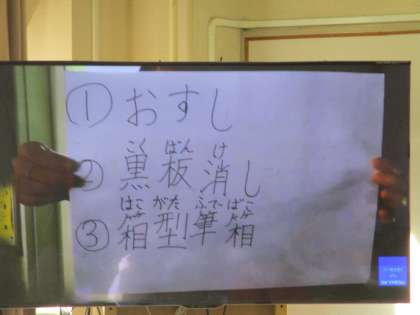 ① おすし
こくばんけ
② 黒板消し
はこがたふでばこ
③ 箱型筆箱